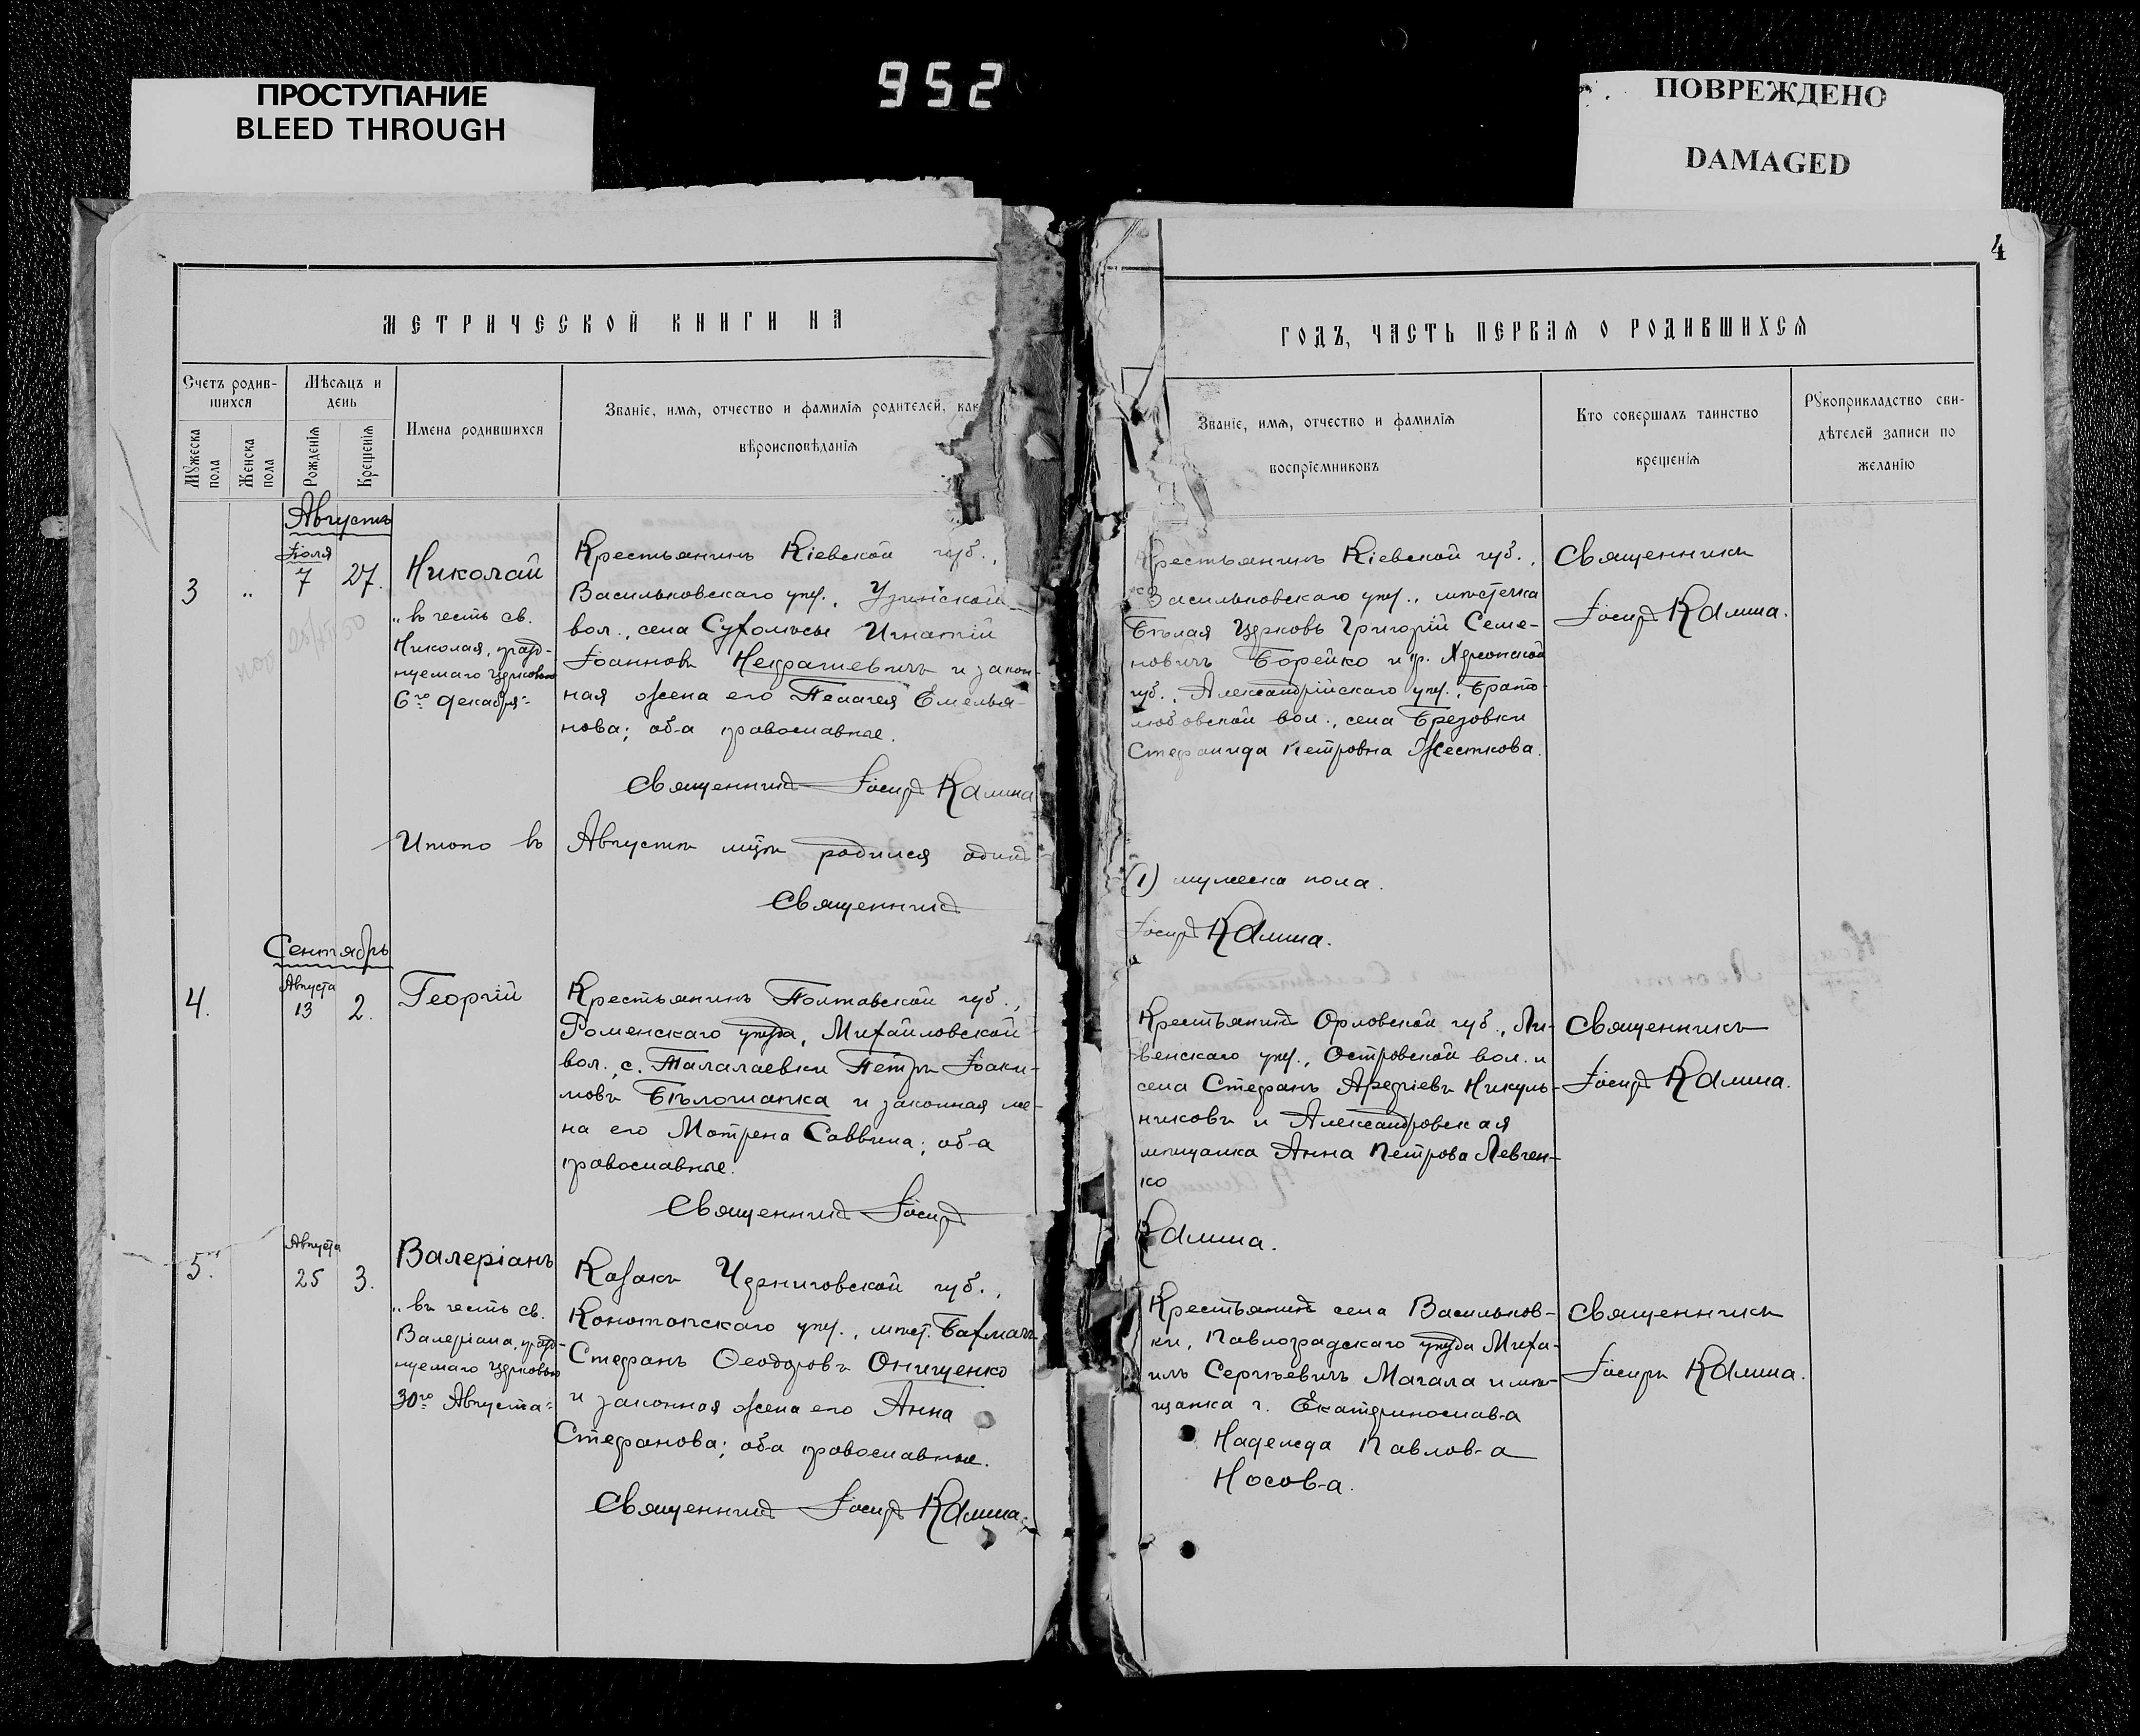 952
ПРОСТУПАНИЕ
BLEED THROUGH
ПОВРЕЖДЕНО
DAMAGED
4
МЕТРИЧЕСКОЙ КНИГИ НА
Счетъ родив-
шихся
Мужеска пола
Женска пола
Мѣсяцъ и
день
Рожденія
Крещенія
Имена родившихся
Званіе, имя, отчество и фамилія родителей, как
вѣроисповѣданія
Августъ
3
"
Іюля
7
27.
Николай
„въ честь св.
Николая, празд-
нуемаго Церковью
6го Декабря:
Крестьянинъ Кіевской губ.,
Васильковскаго уѣз., Узинской
вол., села Сухолѣсы Игнатій
Іоанновъ Некрашевичъ и закон-
ная жена его Пелагея Емелья-
нова; об-а православные.
Священникъ Іосифъ Калина
Итого въ Августѣ м̃цѣ родился одинъ
Священникъ
Сентябрь
4.
Августа
13
2.
Георгій
Крестьянинъ Полтавской губ.,
Роменскаго уѣзда, Михайловской
вол., с. Талалаевки Петръ Іоаки-
мовъ Бѣлошапка и законная же-
на его Мотрена Саввина; об-а
православные.
Священникъ Іосифъ
5.
Августа
25
3.
Валеріанъ
„въ честь св.
Валеріана, празд-
нуемаго Церковью
30го Августа:
Козакъ Черниговской губ.,
Конотопскаго уѣз., мѣст. Бахмачъ
Стефанъ Ѳеодоровъ Онищенко
и законная жена его Анна
Стефанова; об-а православные.
Священникъ Іосифъ Калина.
ГОДЪ, ЧАСТЬ ПЕРВАЯ О РОДИВШИХСЯ
Званіе, имя, отчество и фамилія
воспріемниковъ
Кто совершалъ таинство
крещенія
Рукоприкладство сви-
дѣтелей записи по
желанію
Крестьянинъ Кіевской губ.,
Васильковскаго уѣз., мѣстечка
Бѣлая Церковь Григорій Семе-
новичъ Борейко и кр. Херсонской
губ., Александрійскаго уѣз., Брато-
любовской вол., села Брезовки
Стефанида Петровна Жесткова.
Священникъ
Іосифъ Калина.
(1) мужеска пола.
Іосифъ Калина.
Крестьянинъ Орловской губ., Ли-
венскаго уѣз., Островской вол. и
села Стефанъ Арефіевъ Никуль-
никовъ и Александровская
мѣщанка Анна Петрова Левчен-
ко
Священникъ
Іосифъ Калина.
Калина.
Крестьянинъ села Васильков-
ки, Павлоградскаго уѣзда Миха-
илъ Сергѣевичъ Магала и мѣ-
щанка г. Екатеринослав-а
Надежда Павлов-а
Носов-а.
Священникъ
Іосифъ Калина.